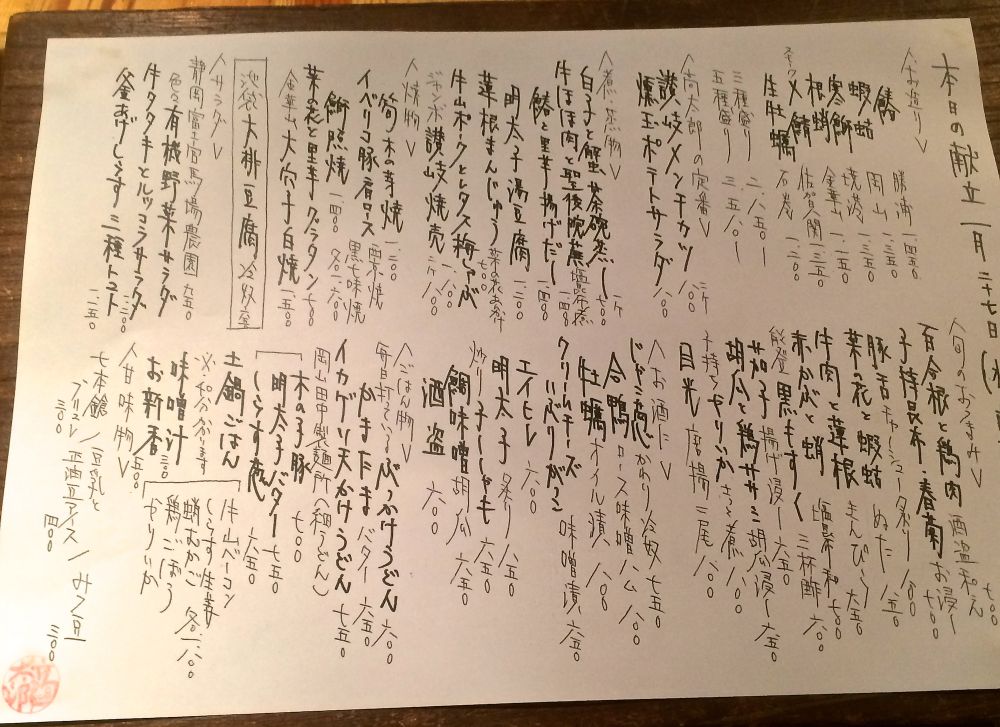 本日の献立 一月二十七日
〈お造り〉
鰆 勝浦 一、四五〇
蝦蛄 岡山 一、三五〇
寒鰤 金華山 一、二五〇
生牡蠣 石巻 一、二〇〇
三種盛り 二、八五〇
五種盛り 三、五八〇
の定番〉
讃岐メンチカツ 二ケ 八〇〇
燻玉ポテトサラダ 八〇〇
〈煮・蒸物〉
白子と蟹茶碗蒸し 七〇〇
牛ほほ肉と聖護院蕪塩昆布煮
鰆と里芋揚げだし 一、四〇〇
明太子湯豆腐 一、二〇〇
蓮根まんじゅう 菜の花あんかけ 七〇〇
牛山ポークとレタス梅しゃぶ 一、八〇〇
ジャンボ讃岐焼売 二ケ
〈焼物〉
筍木の芽焼 一、二〇〇
イベリコ豚肩ロース 西京焼 黒七味焼 各一、六〇〇
鰤照焼 一、四〇〇
菜の花と里芋グラタン 七〇〇
金華山大穴子白焼 一、五〇〇
池袋大桃豆腐 冷奴
〈サラダ〉
静岡富士宮馬場農園
色々有機野菜サラダ 九五〇
牛タタキとルッコラサラダ 一、二〇〇
釜あげしらす三種トマト 一、一五〇
〈旬のおつまみ〉
百合根と鶏肉 酒盗和え 七〇〇
子持昆布・春菊 お浸し 七〇〇
豚舌 チャーシュー炙り 八〇〇
菜の花と蝦蛄 ぬた 八五〇
牛肉と蓮根 きんぴら 六五〇
赤かぶと蛸 塩昆布和 七〇〇
能登 黒もずく 三杯酢 六〇〇
茄子 揚げ浸し 六五〇
胡瓜と鶏ササミ 胡瓜浸し 六五〇
子持ちヤリいか さっと煮 八〇〇
目光 唐揚 二尾 八〇〇
〈お酒に〉
じゃこ葱かわり冷奴 七五〇
合鴨 ロース味噌ハム 八〇〇
牡蠣 オイル漬 八〇〇
クリームチーズ いぶりがっこ 味噌漬 六五〇
エイヒレ 六五〇
明太子 炙り 八五〇
炒り子ししゃも 六五〇
鯛味噌 胡瓜 六五〇
酒盗 六〇〇
〈ごはん物〉
毎日打っているぶっかけうどん 六〇〇
かまたま バター 六五〇
イカゲソ天かけうどん 七五〇
岡山田中製麺所(細うどん)
木の子豚 七〇〇
明太子バター 七五〇
しらす葱 六五〇
土鍋ごはん
※25分かかります
牛山ベーコン
しらす生姜
蛸むかご
鶏ごぼう
ヤリいか
各一、八〇〇
味噌汁 二〇〇
お新香 五〇〇
〈甘味物〉
七本鎗/豆乳と酒豆アイス/みつ豆
ブリュレ 三〇〇 四〇〇 三〇〇